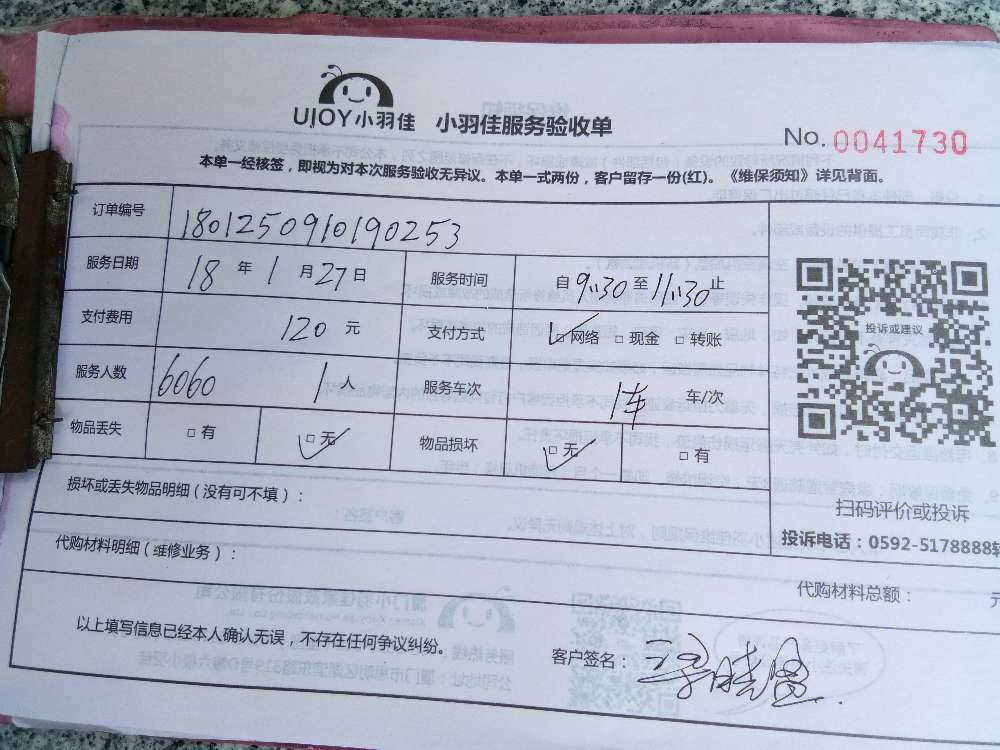 UJOY小羽佳 小羽佳服务验收单
No. 0041730
本单一经核签，即视为对本次服务验收无异议。本单一式两份，客户留存一份(红)。《维保须知》详见背面。
订单编号 1801250910190253
服务日期 18 年 1 月 27 日 服务时间 自 9:30 至 11:30 止
支付费用 120 元 支付方式 ☑网络 □现金 □转账
服务人数 6060 1 人 服务车次 1车 车/次
物品丢失 □有 ☑无 物品损坏 ☑无 □有
投诉或建议
损坏或丢失物品明细（没有可不填）：
扫码评价或投诉
投诉电话：0592-5178888转
代购材料明细（维修业务）：
代购材料总额： 元
以上填写信息已经本人确认无误，不存在任何争议纠纷。
客户签名：